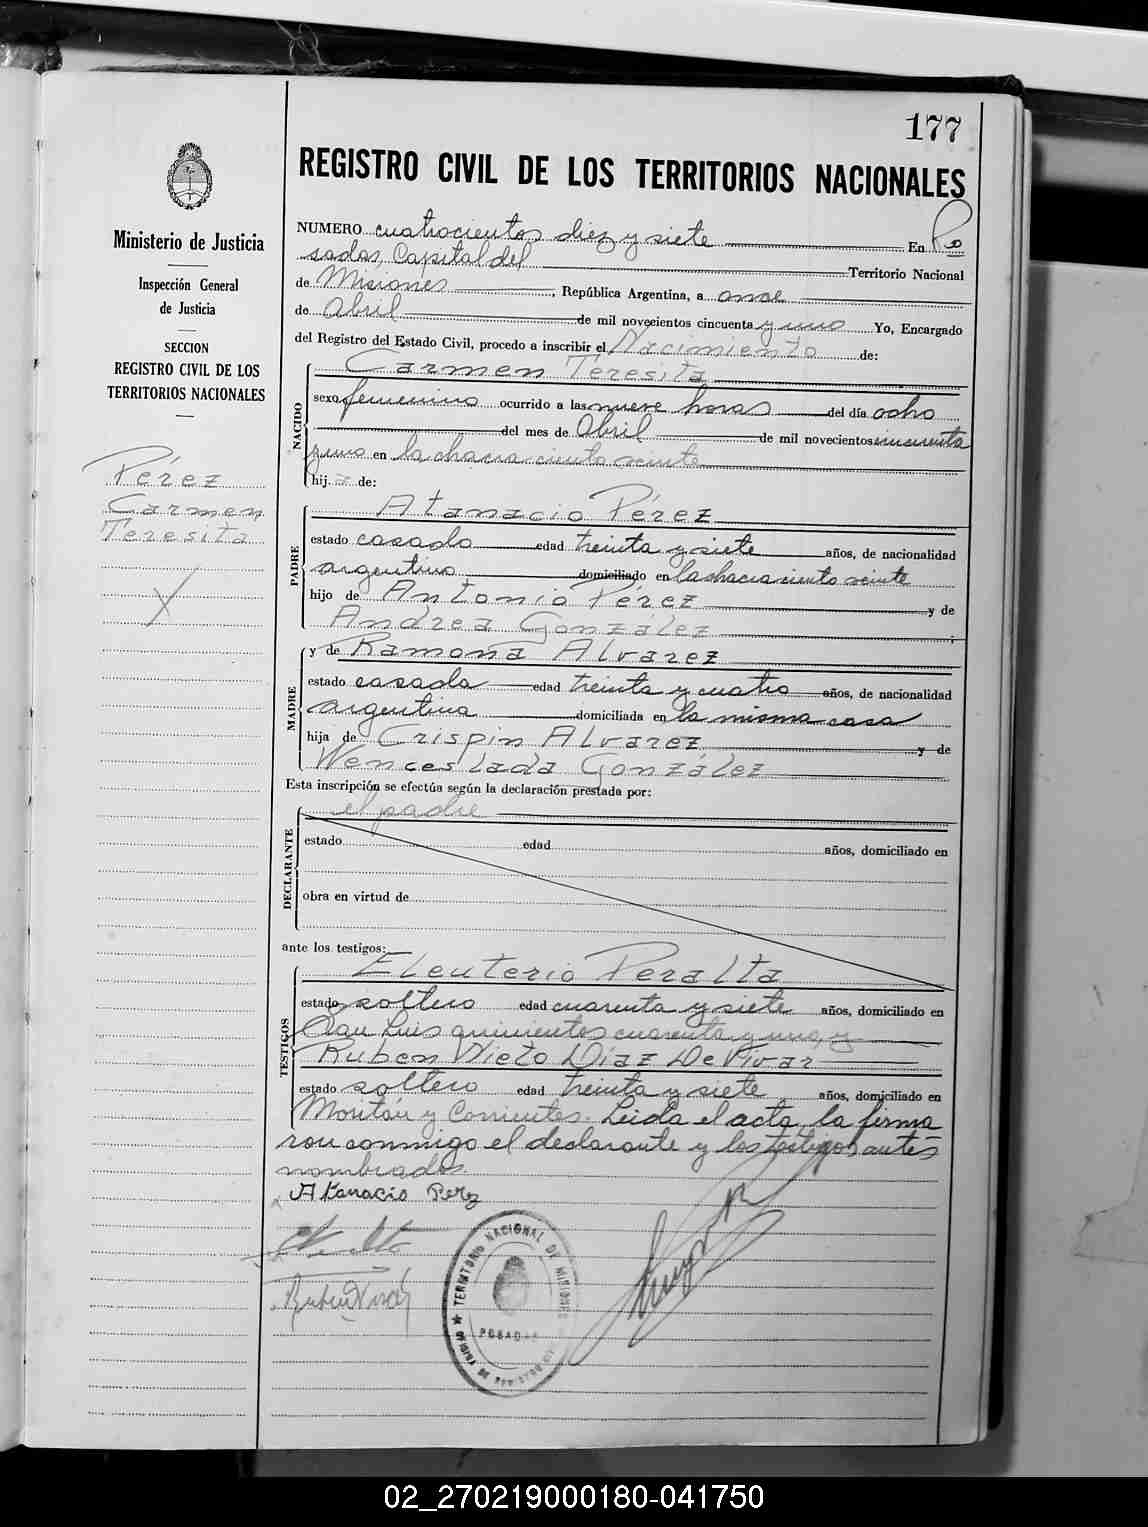 177
REGISTRO CIVIL DE LOS TERRITORIOS NACIONALES
Ministerio de Justicia
Inspección General
de Justicia
SECCION
REGISTRO CIVIL DE LOS
TERRITORIOS NACIONALES
Pérez
Carmen
Teresita
NUMERO cuatrocientos diez y siete En Po
sadas, Capital del Territorio Nacional
de Misiones, República Argentina, a once
de Abril de mil novecientos cincuenta y uno Yo, Encargado
del Registro del Estado Civil, procedo a inscribir el Nacimiento de:
Carmen Teresita
NACIDO
sexo femenino ocurrido a las nueve horas del día ocho
del mes de Abril de mil novecientos cincuenta
y uno en la chacra ciento veinte
hija de:
PADRE
Atanacio Pérez
estado casado edad treinta y siete años, de nacionalidad
argentino domiciliado en la chacra ciento veinte
hijo de Antonio Pérez y de
Andrea González ;
MADRE
y de Ramona Alvarez
estado casada edad treinta y cuatro años, de nacionalidad
argentina domiciliada en la misma casa
hija de Crispin Alvarez y de
Wenceslada González
Esta inscripción se efectúa según la declaración prestada por:
DECLARANTE
el padre
estado edad años, domiciliado en
obra en virtud de
ante los testigos:
TESTIGOS
Eleuterio Peralta
estado soltero edad cuarenta y siete años, domiciliado en
San Luis quinientos cuarenta y uno, y
Ruben Nieto Diaz De Vivar
estado soltero edad treinta y siete años, domiciliado en
Moritán y Corrientes. Leida el acta, la firma
ron conmigo el declarante y los testigos antes
nombrados.
Atanacio Perez
TERRITORIO NACIONAL DE MISIONES
POSADAS
02_270219000180-041750